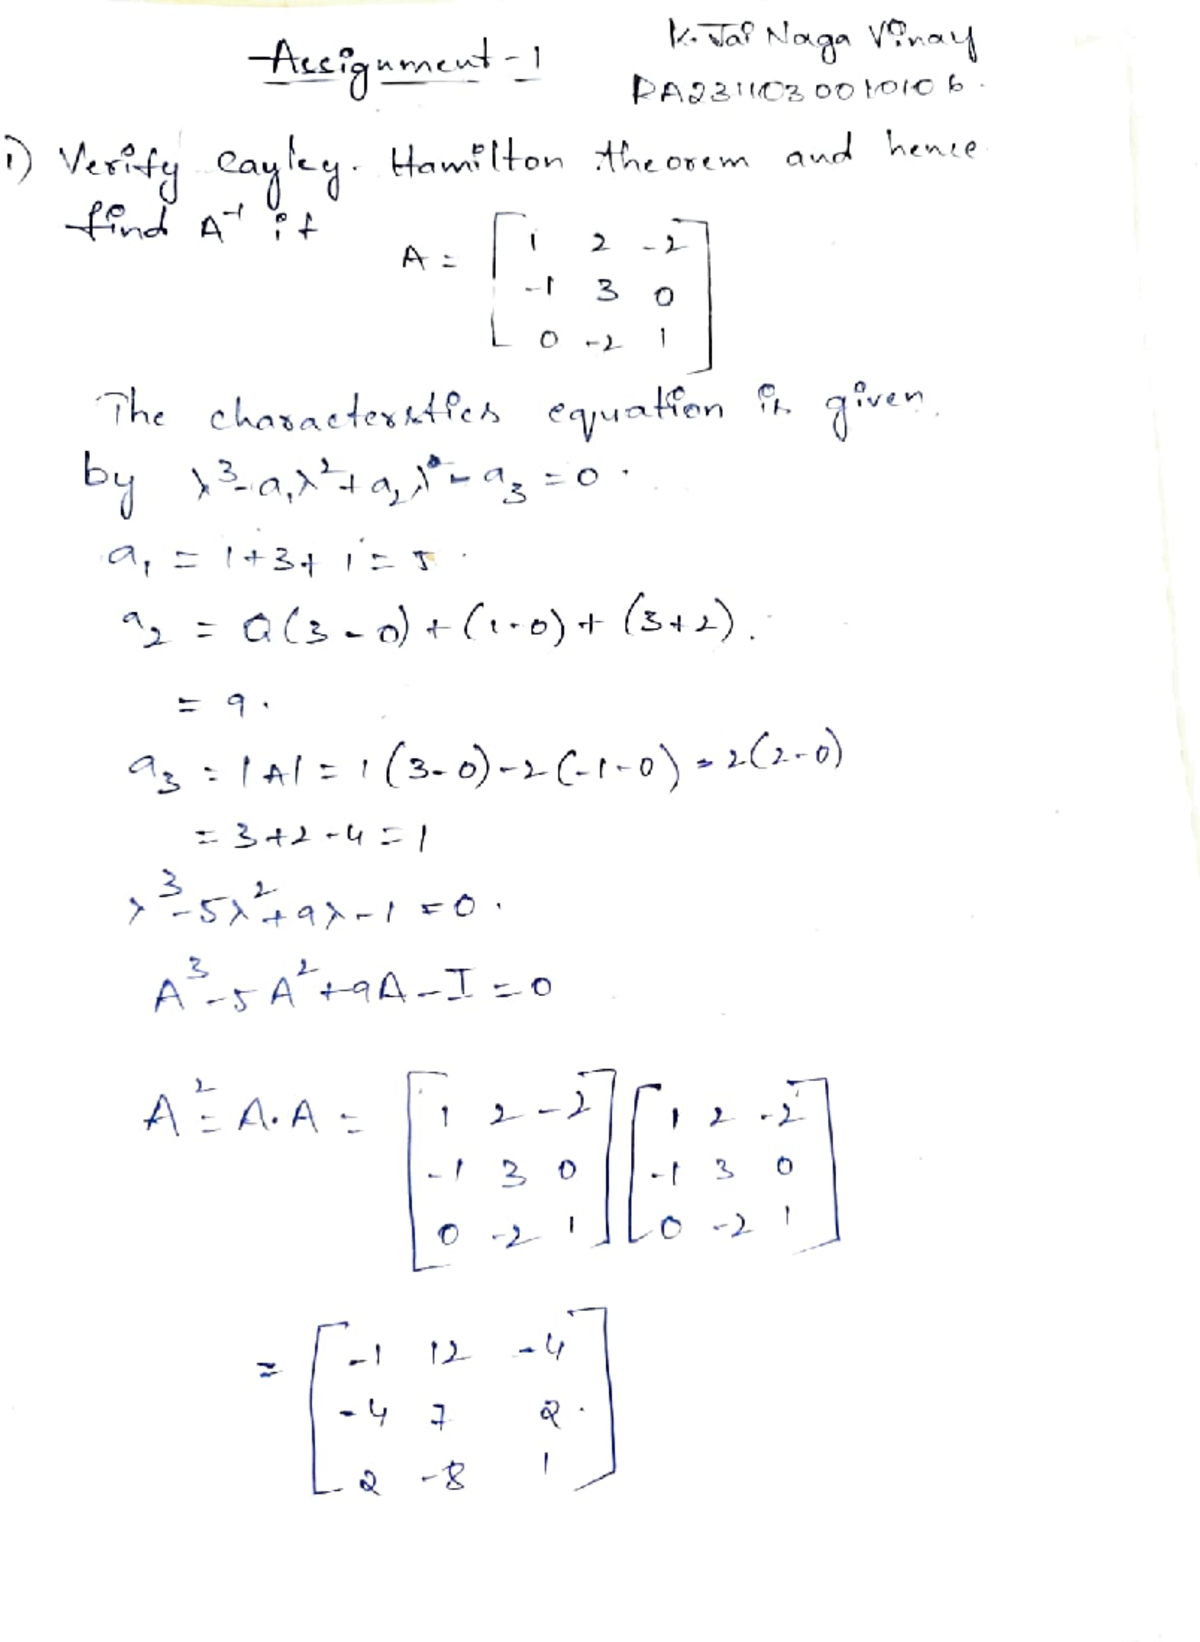 Assignment-1
K. Jai Naga Vinay
RA2311030010106
1) Verify Cayley. Hamilton theorem and hence
find A⁻¹ if
A = [1 2 -2
-1 3 0
0 -2 1]
The characterstics equation is given
by λ³-a₁λ²+a₂λ-a₃=0.
a₁ = 1+3+1=5.
a₂ = (3-0)+(1-0)+(3+2).
= 9.
a₃ = |A| = 1(3-0)-2(-1-0)-2(2-0)
= 3+2-4=1
λ³-5λ²+9λ-1=0.
A³-5A²+9A-I=0
A²=A.A= [1 2 -2 [1 2 -2
-1 3 0 -1 3 0
0 -2 1] 0 -2 1]
= [-1 12 -4
-4 7 2
2 -8 1]